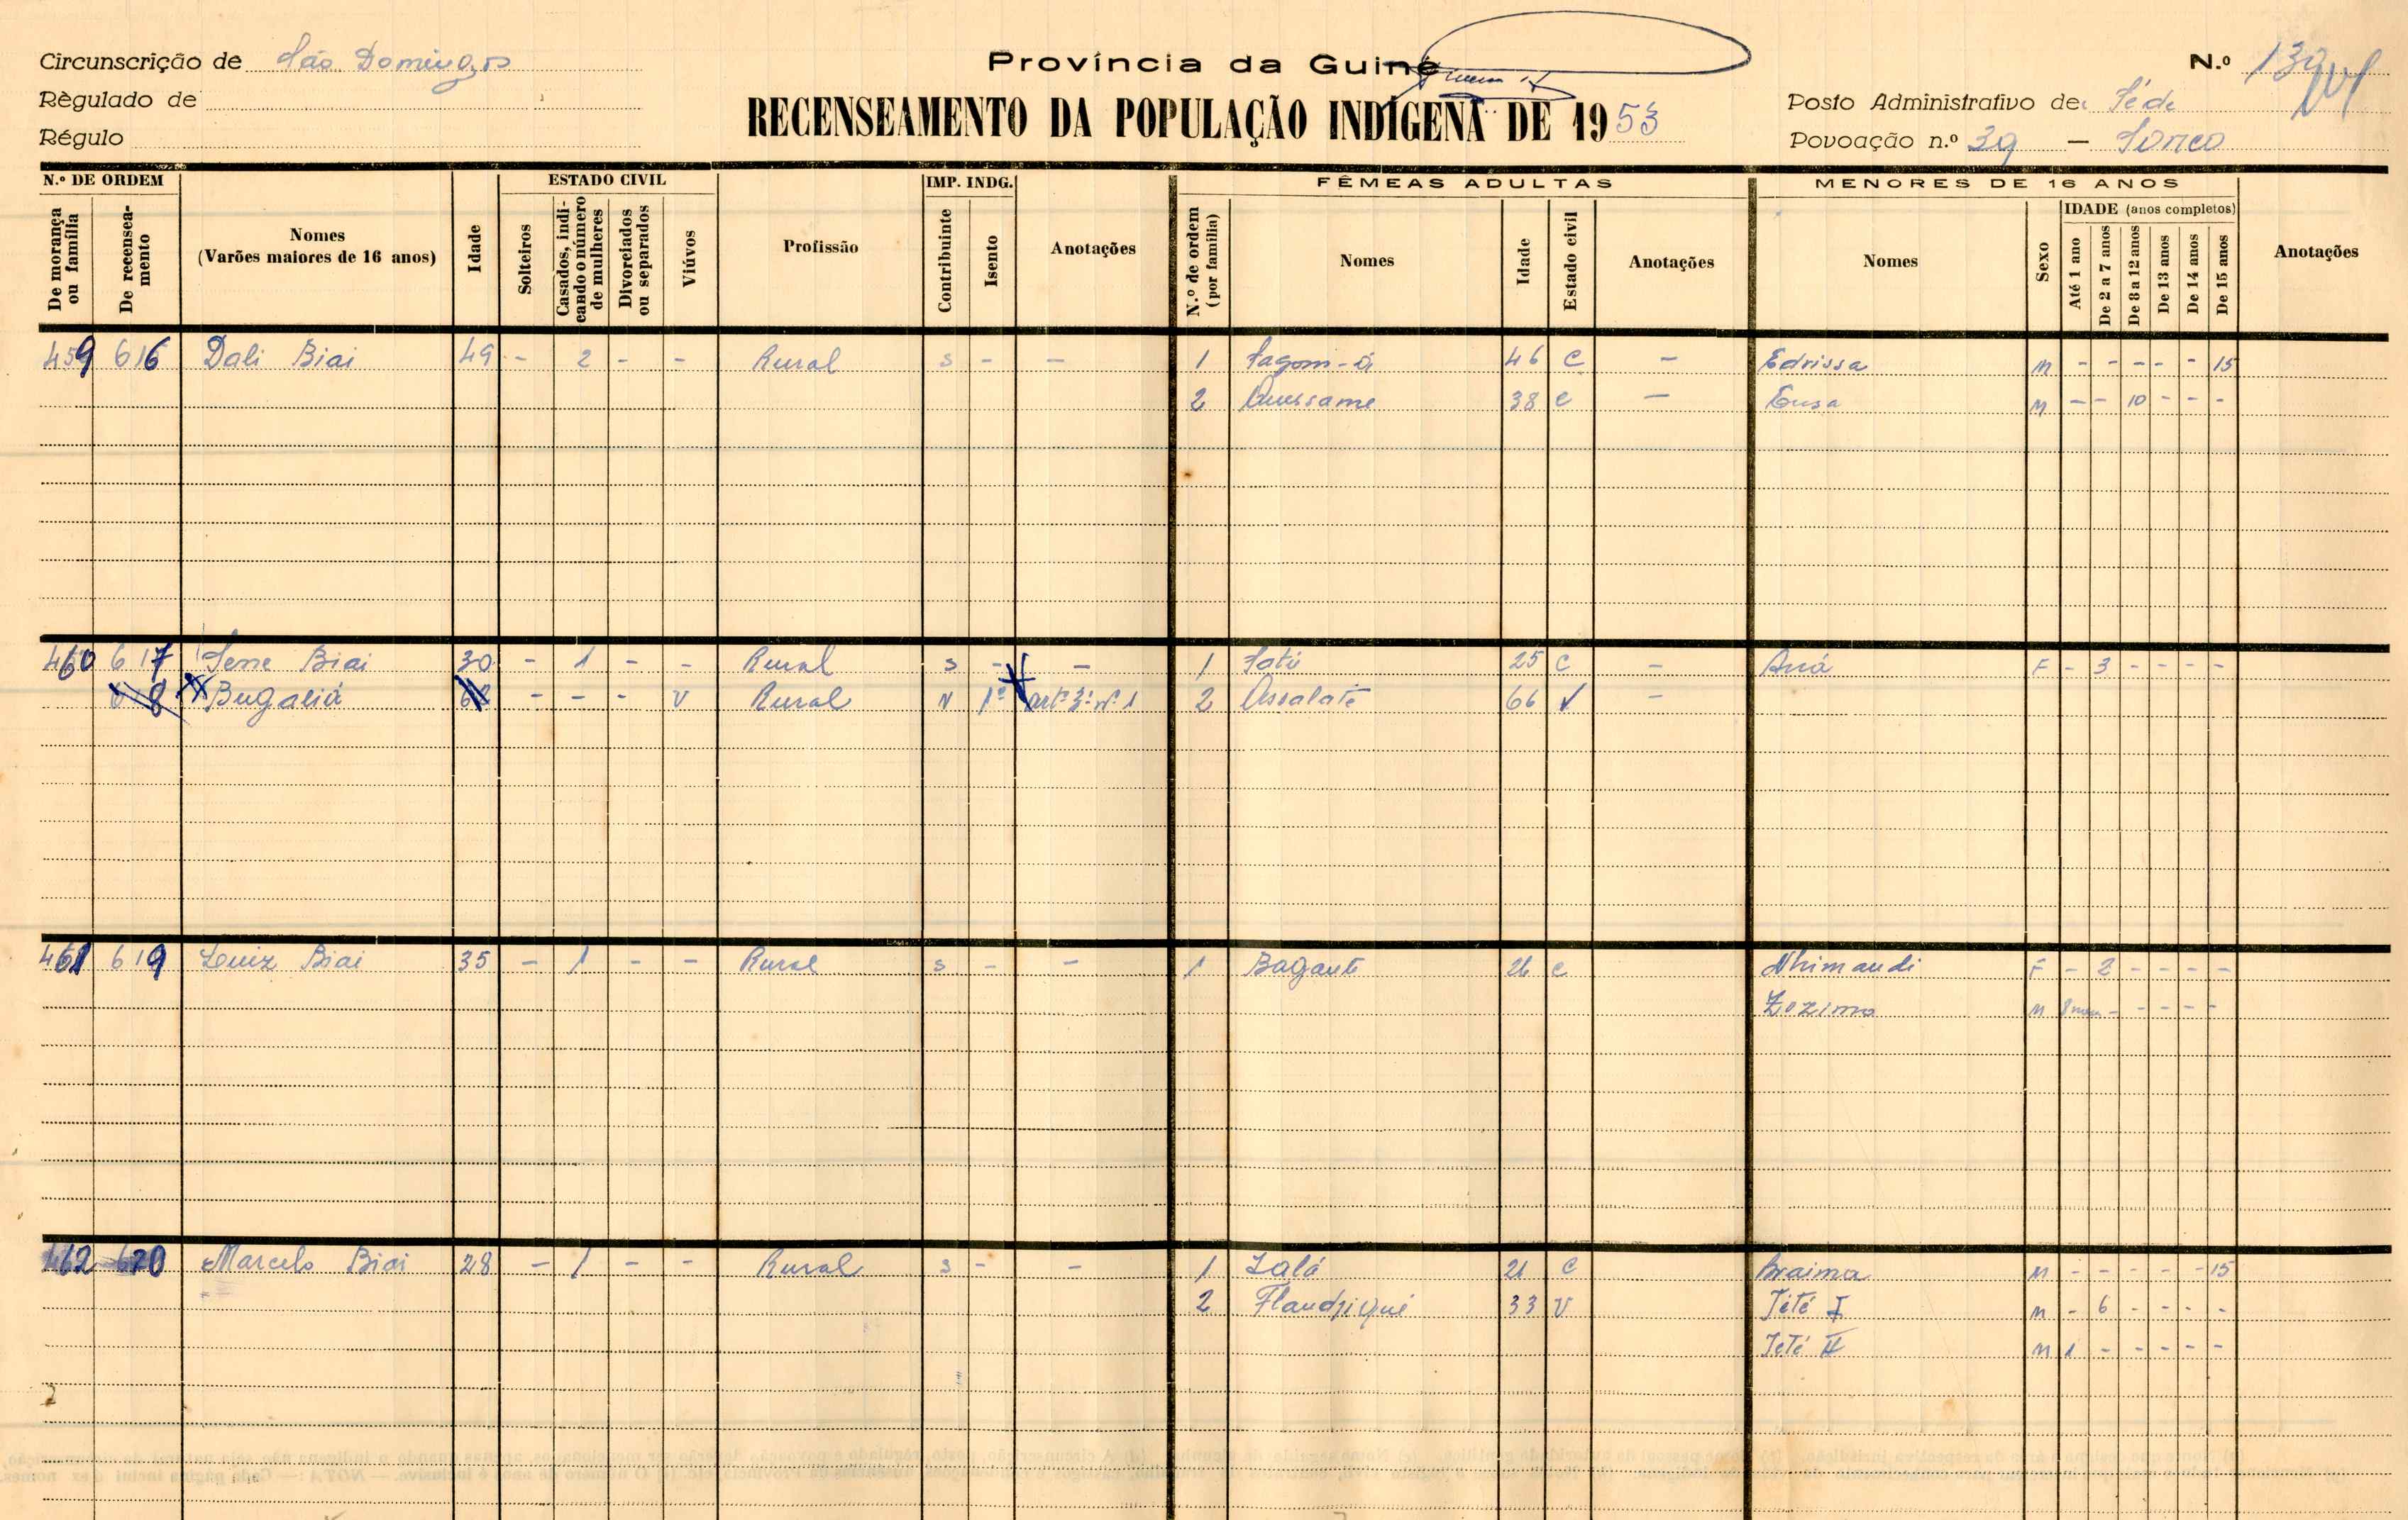 Circunscrição de São Domingos
Règulado de
Régulo
Província da Guiné
RECENSEAMENTO DA POPULAÇÃO INDÍGENA DE 1953
N.º 139
Posto Administrativo de Séde
Povoação n.º 39 – Sonco
N.º DE ORDEM
De morança ou família
De recenseamento
Nomes
(Varões maiores de 16 anos)
Idade
ESTADO CIVIL
Solteiros
Casados, indicando o número de mulheres
Divorciados ou separados
Viúvos
Profissão
IMP. INDG.
Contribuinte
Isento
Anotações
FÊMEAS ADULTAS
N.º de ordem (por família)
Nomes
Idade
Estado civil
Anotações
MENORES DE 16 ANOS
Nomes
Sexo
IDADE (anos completos)
Até 1 ano
De 2 a 7 anos
De 8 a 12 anos
De 13 anos
De 14 anos
De 15 anos
Anotações
459 616 Dali Biai 49 - 2 - - Rural S - - 1 46 C - Edrissa M - - - - - 15
2 38 C - M - - 10 - - -
460 617 Biai 30 - 1 - - Rural S - - 1 Fatú 25 C - Aná F - 3 - - - -
618 Bugaliá 68 - - - V Rural N 1º artº 3º nº 1 2 Assalaté 66 V -
461 619 Luiz Biai 35 - 1 - - Rural S - - 1 Bagante 26 C Nhimandi F - 2 - - - -
Zozimo M - - - - -
462 620 Marcelo Biai 28 - 1 - - Rural S - - 1 Ialá 21 C Braima M - - - - - 15
2 33 V Tété I M - 6 - - - -
Tété II M 1 - - - - -